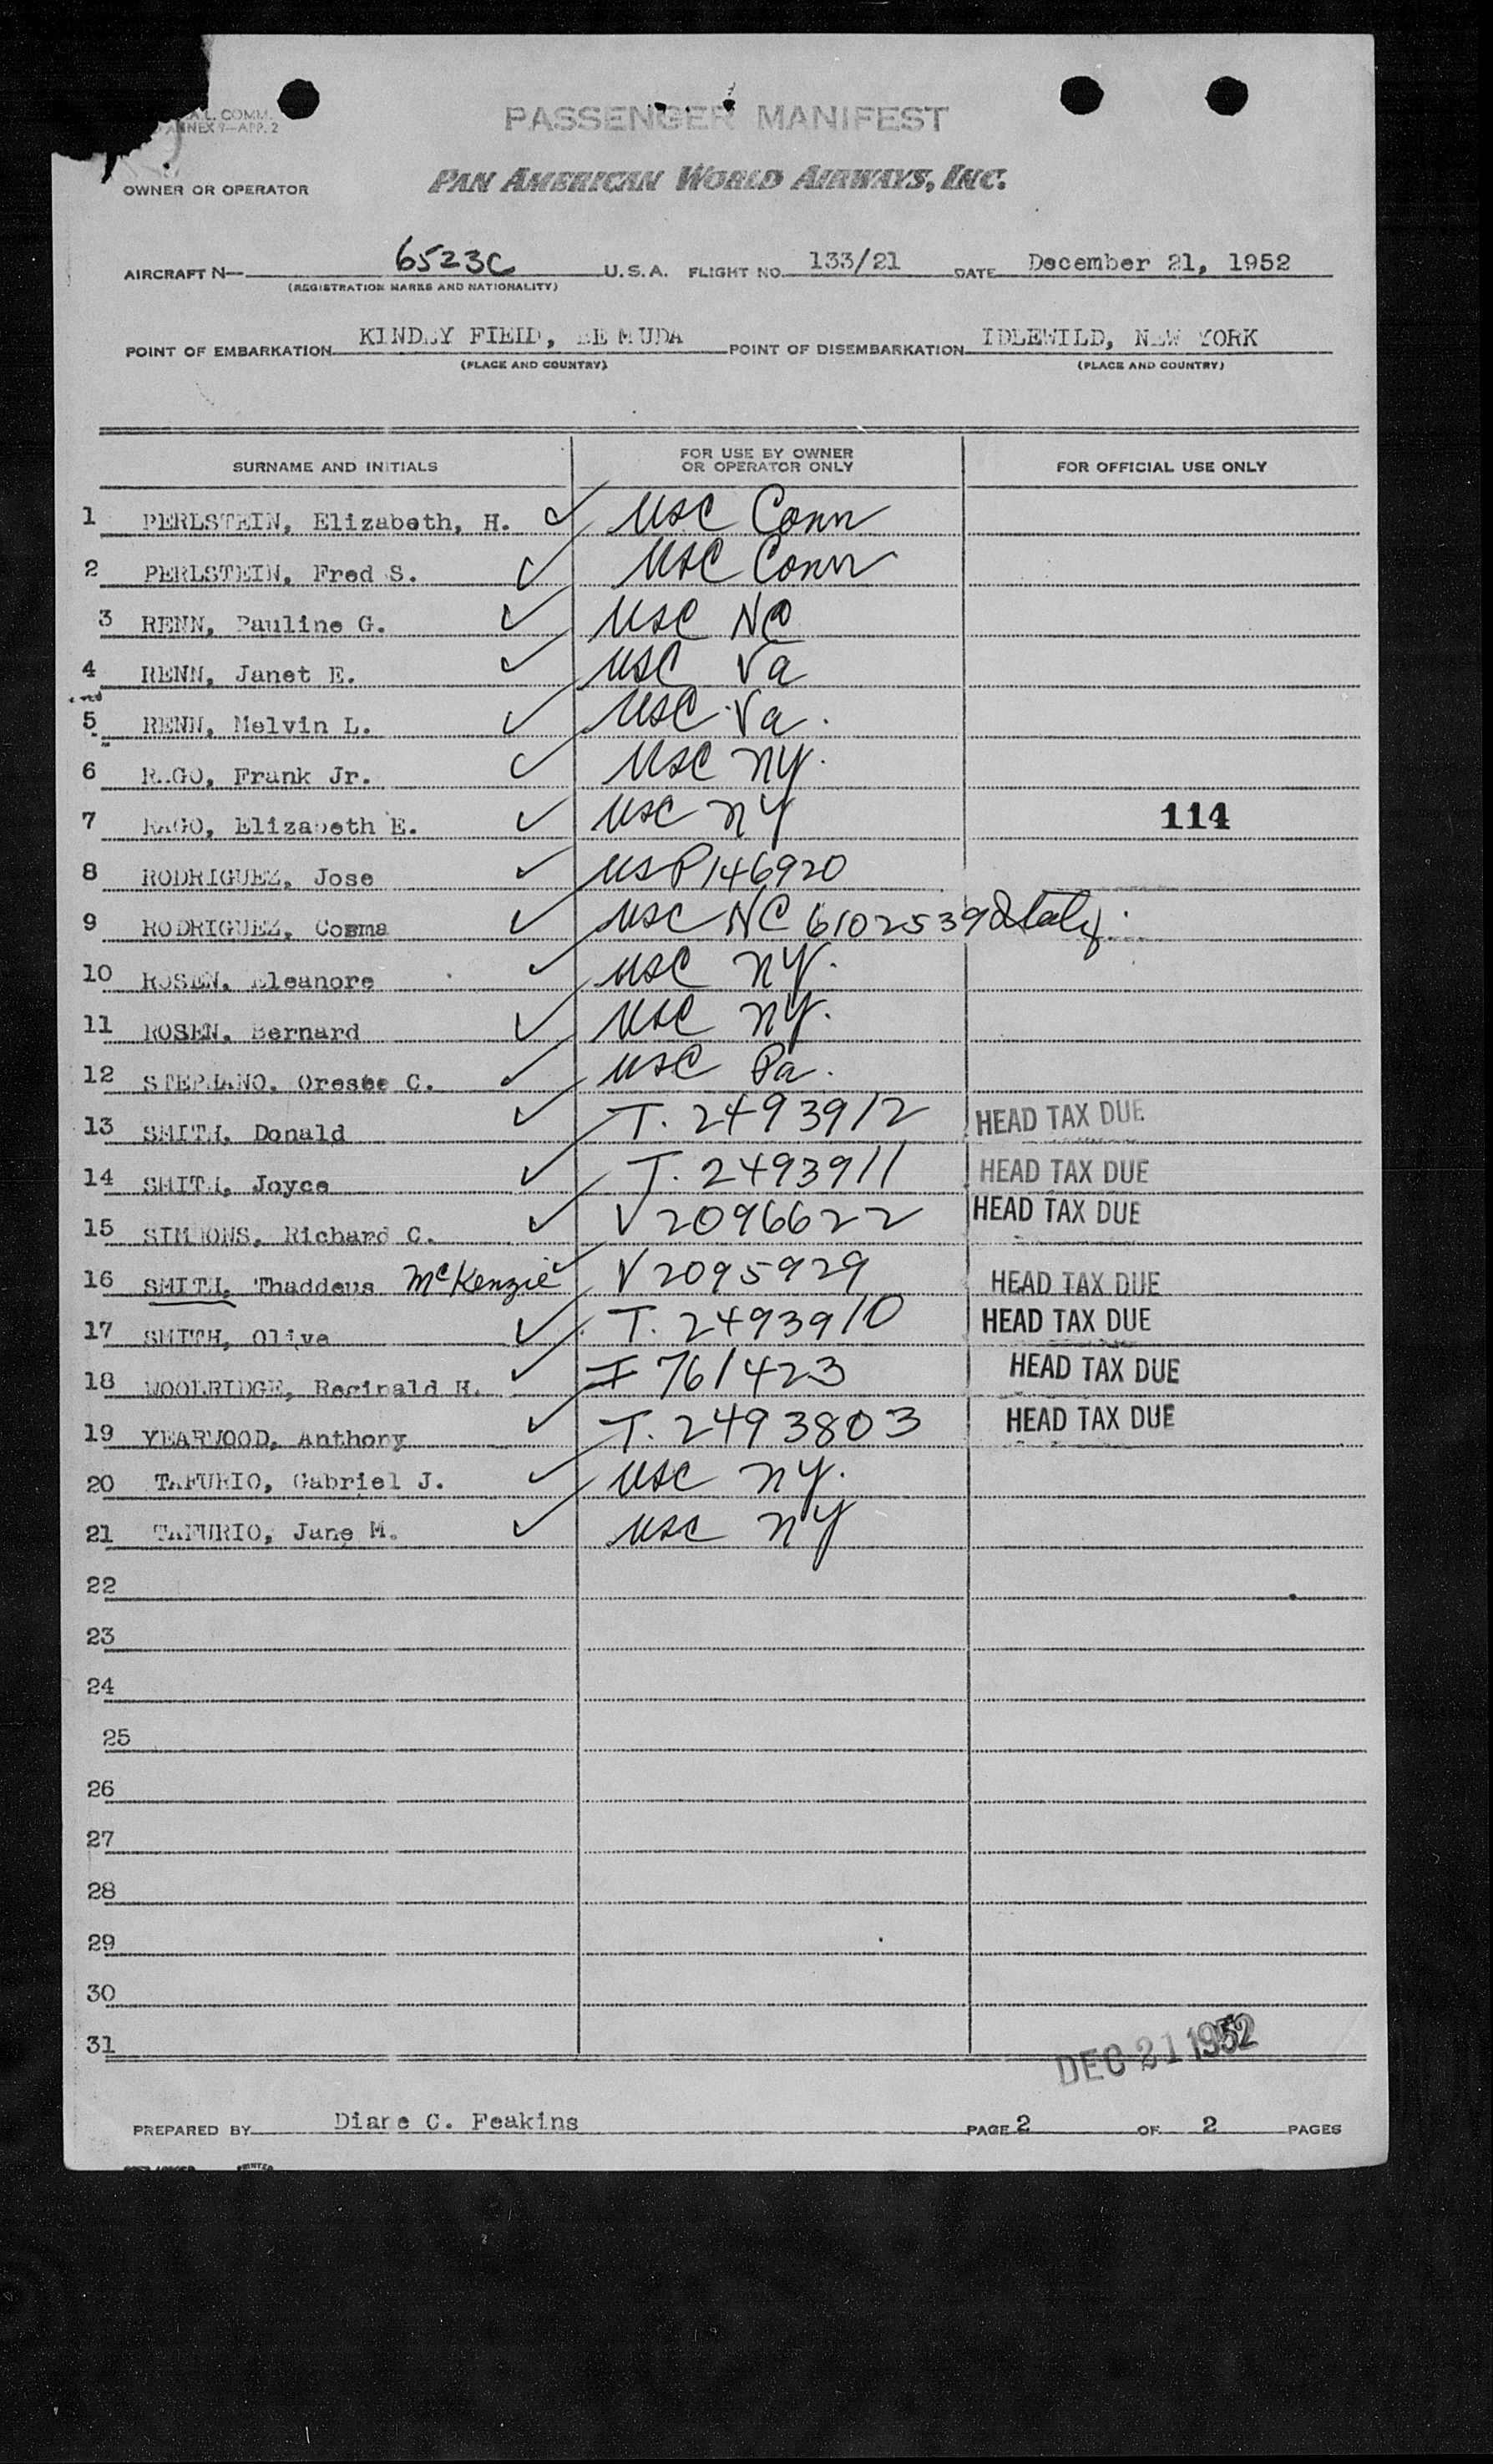 L. COMM.
ANNEX 9—APP. 2
PASSENGER MANIFEST
OWNER OR OPERATOR PAN AMERICAN WORLD AIRWAYS, INC.
AIRCRAFT N— 6523C U.S.A. FLIGHT NO. 133/21 DATE December 21, 1952
(REGISTRATION MARKS AND NATIONALITY)
POINT OF EMBARKATION KINDLEY FIELD, BERMUDA POINT OF DISEMBARKATION IDLEWILD, NEW YORK
(PLACE AND COUNTRY) (PLACE AND COUNTRY)
SURNAME AND INITIALS FOR USE BY OWNER OR OPERATOR ONLY FOR OFFICIAL USE ONLY
1 PERLSTEIN, Elizabeth, H. ✓ USC Conn
2 PERLSTEIN, Fred S. ✓ USC Conn
3 RENN, Pauline G. ✓ USC NC
4 RENN, Janet E. ✓ USC Va
5 RENN, Melvin L. ✓ USC Va.
6 RAGO, Frank Jr. ✓ USC NY.
7 RAGO, Elizabeth E. ✓ USC NY 114
8 RODRIGUEZ, Jose ✓ USP146920
9 RODRIGUEZ, Cosma ✓ USC NC 6102539 Italy.
10 ROSEN, Eleanore ✓ USC NY.
11 ROSEN, Bernard ✓ USC NY.
12 STEPHANO, Oreste C. ✓ USC Pa.
13 SMITH, Donald ✓ T. 2493912 HEAD TAX DUE
14 SMITH, Joyce ✓ T. 2493911 HEAD TAX DUE
15 SIMMONS, Richard C. ✓ V2096622 HEAD TAX DUE
16 SMITH, Thaddeus McKenzie ✓ V2095929 HEAD TAX DUE
17 SMITH, Olive ✓ T. 2493910 HEAD TAX DUE
18 WOOLRIDGE, Reginald H. ✓ I 761423 HEAD TAX DUE
19 YEARWOOD, Anthony ✓ T. 2493803 HEAD TAX DUE
20 TAFURIO, Gabriel J. ✓ USC NY.
21 TAFURIO, Jane M. ✓ USC NY
22
23
24
25
26
27
28
29
30
31
DEC 21 1952
PREPARED BY Diane C. Feakins PAGE 2 OF 2 PAGES